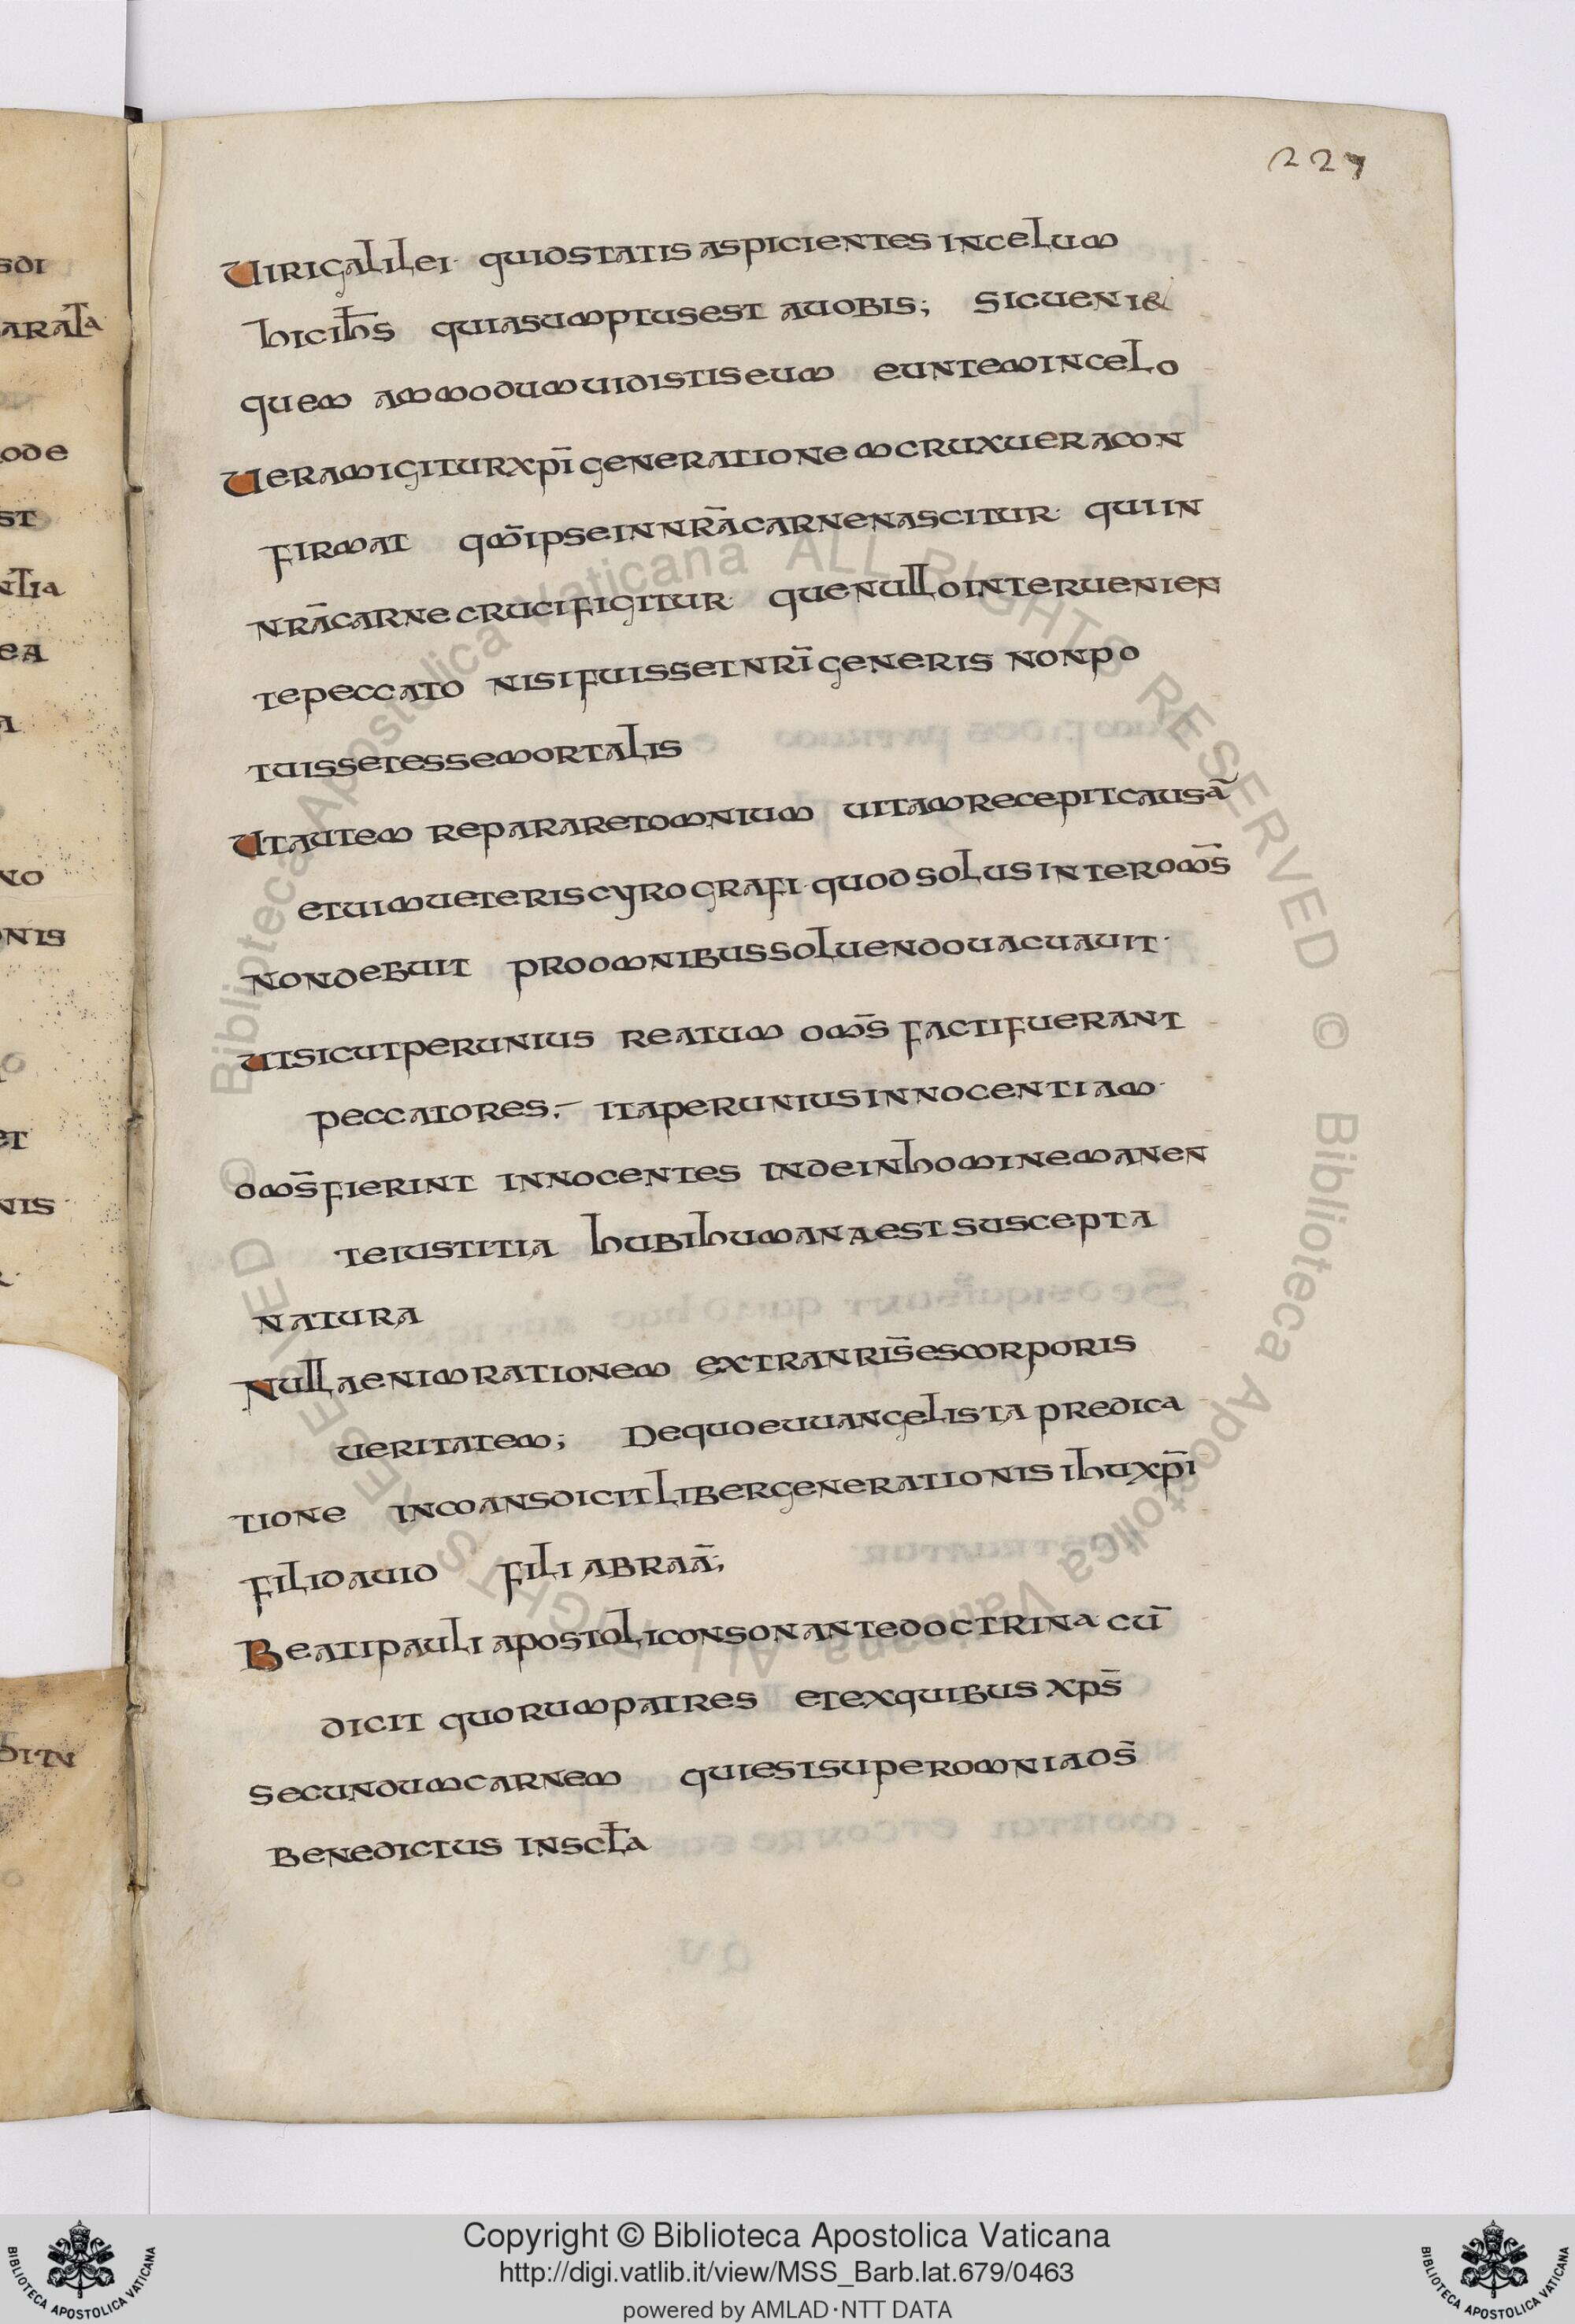 227
Uirigalilei· quidstatis aspicientes incelum
hicih̄s quiasumptusest auobis; sicueni&
quem ammodumuidistiseum euntemincelo
Ueramigiturxp̄igenerationemcruxueracon
firmat qm̄ipseinnr̄acarnenascitur· quiin
nr̄acarnecrucifigitur· quenullointeruenien
tepeccato nisifuissetnr̄igeneris nonpo
tuissetessemortalis
Utautem repararetomnium uitamrecepitcausā
etuimueteriscyrografi·quodsolusinteroms̄
nondebuit proomnibussoluendouacuauit·
utsicutperunius reatum oms̄ factifuerant
peccatores;– itaperuniusinnocentiam·
oms̄fierint innocentes indeinhominemanen
teiustitia hubihumanaestsuscepta
natura
Nullaenimrationem extranris̄escorporis
ueritatem; Dequoeuuangelista predica
tione incoansdicitlibergenerationis ihuxp̄i
filidauid fili abraā;
Beatipauli apostoliconsonantedoctrina· cū
dicit quorumpatres etexquibus xps̄
secundumcarnem quiestsuperomniads̄
benedictus inscl̄a
sdi
arata
ode
st
ntia
ea
no
onis
et
nis
ditn
© Biblioteca Apostolica Vaticana ALL RIGHTS RESERVED © Biblioteca Apostolica Vaticana ALL RIGHTS RESERVED
Copyright © Biblioteca Apostolica Vaticana
http://digi.vatlib.it/view/MSS_Barb.lat.679/0463
powered by AMLAD·NTT DATA
BIBLIOTECA APOSTOLICA VATICANA
BIBLIOTECA APOSTOLICA VATICANA